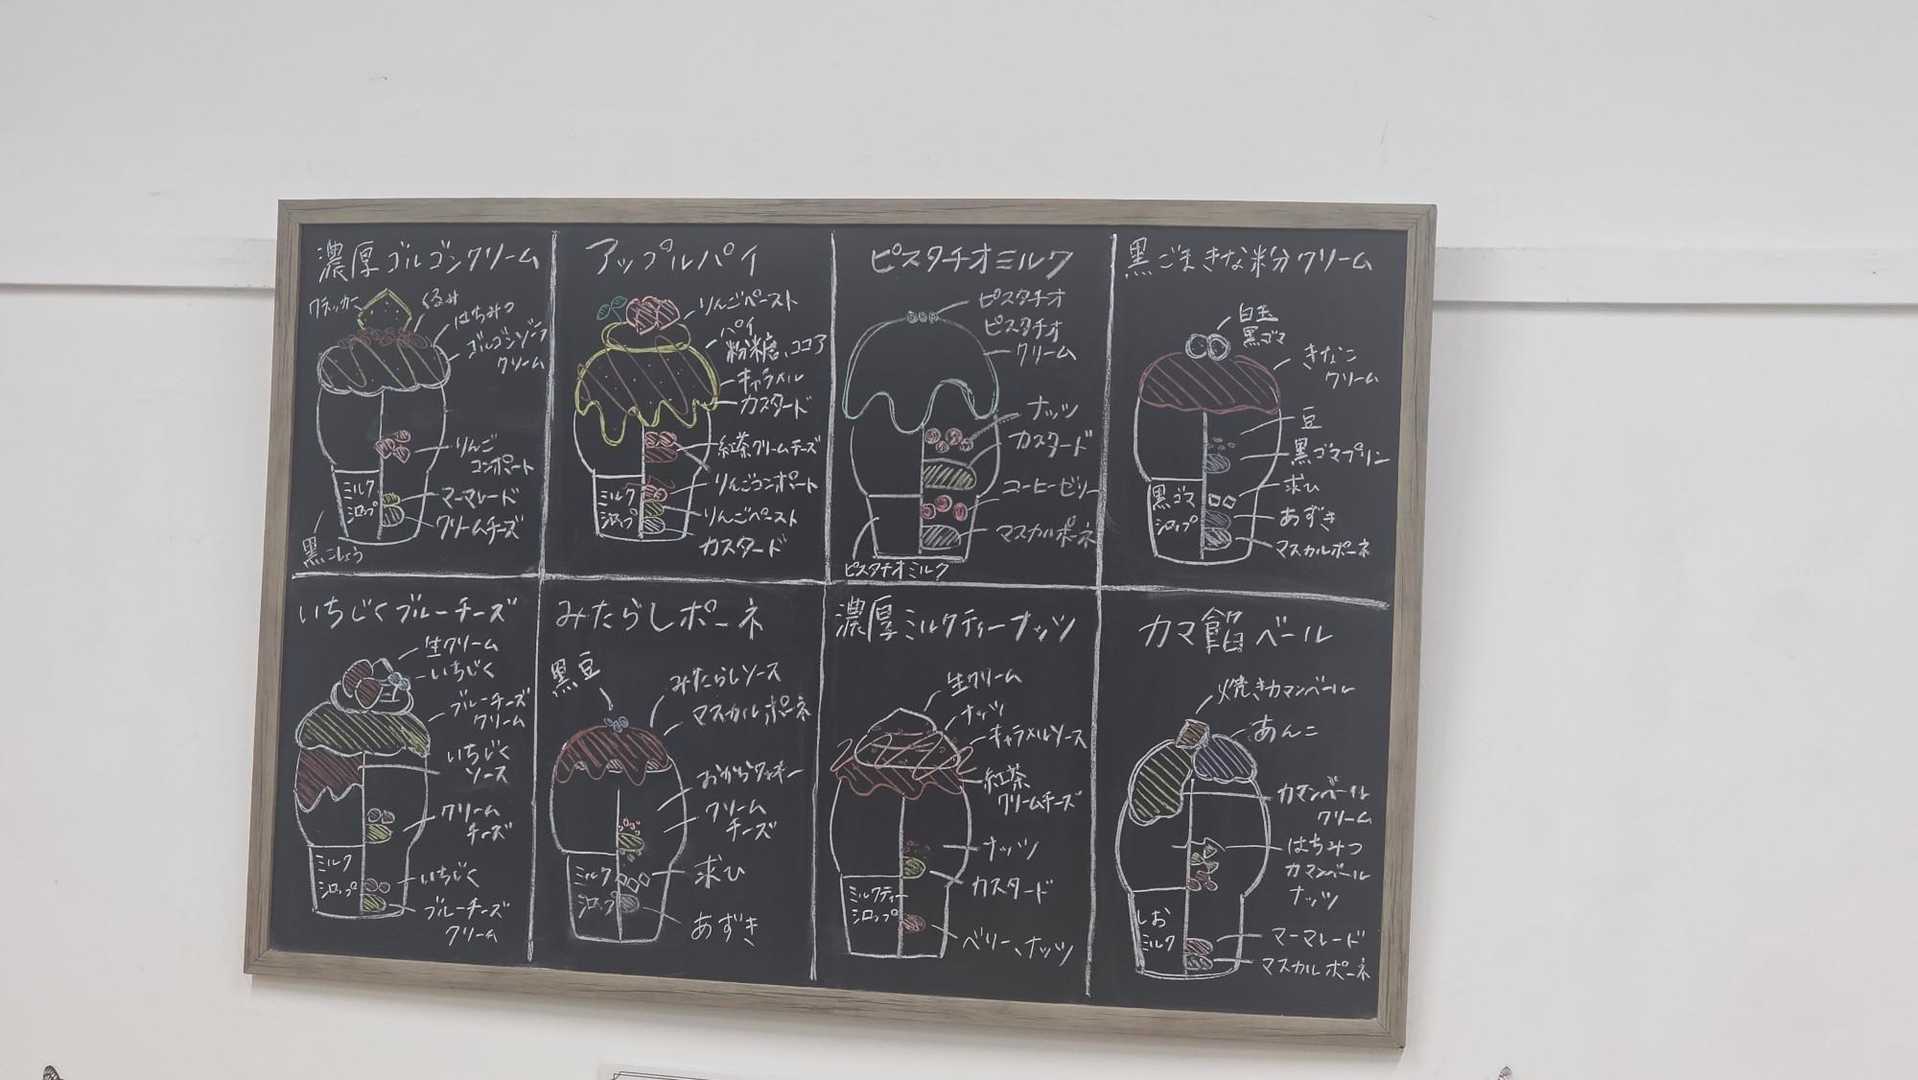 濃厚ゴルゴンクリーム
クラッカー
くるみ
はちみつ
ゴルゴンゾーラ
クリーム
りんご
コンポート
ミルク
シロップ
マーマレード
クリームチーズ
黒こしょう
アップルパイ
りんごペースト
パイ
粉糖、ココア
キャラメル
カスタード
紅茶クリームチーズ
りんごコンポート
ミルク
シロップ
りんごペースト
カスタード
ピスタチオミルク
ピスタチオ
ピスタチオ
クリーム
ナッツ
カスタード
コーヒーゼリー
マスカルポーネ
ピスタチオミルク
黒ごまきな粉クリーム
白玉
黒ゴマ
きなこ
クリーム
豆
黒ゴマプリン
求ひ
黒ゴマ
シロップ
あずき
マスカルポーネ
いちじくブルーチーズ
生クリーム
いちじく
ブルーチーズ
クリーム
いちじく
ソース
クリーム
チーズ
ミルク
シロップ
いちじく
ブルーチーズ
クリーム
みたらしポーネ
黒豆
みたらしソース
マスカルポーネ
おからクッキー
クリーム
チーズ
ミルク
シロップ
求ひ
あずき
濃厚ミルクティーナッツ
生クリーム
ナッツ
キャラメルソース
紅茶
クリームチーズ
ナッツ
カスタード
ミルクティー
シロップ
ベリー、ナッツ
カマ餡ベール
焼きカマンベール
あんこ
カマンベール
クリーム
はちみつ
カマンベール
ナッツ
しお
ミルク
マーマレード
マスカルポーネ